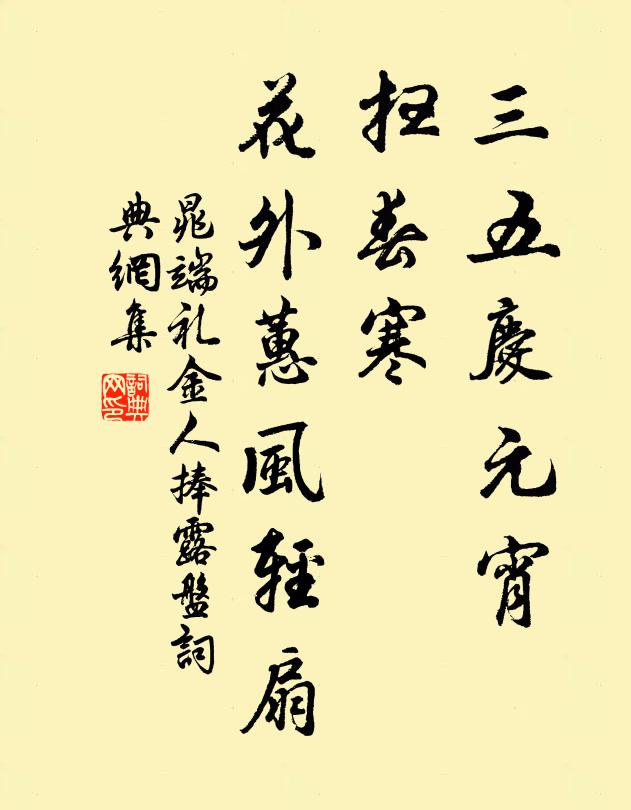 三五慶元宵
扫春寒
花外蕙風輕扇
晁端礼金人捧露盤詞
典網集
詞典網印